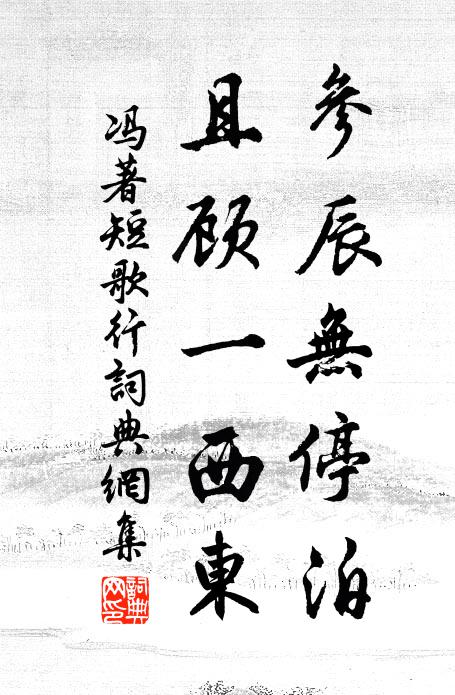 參辰無停泊
且顾一西東
冯著短歌行詞典網集
詞典网印